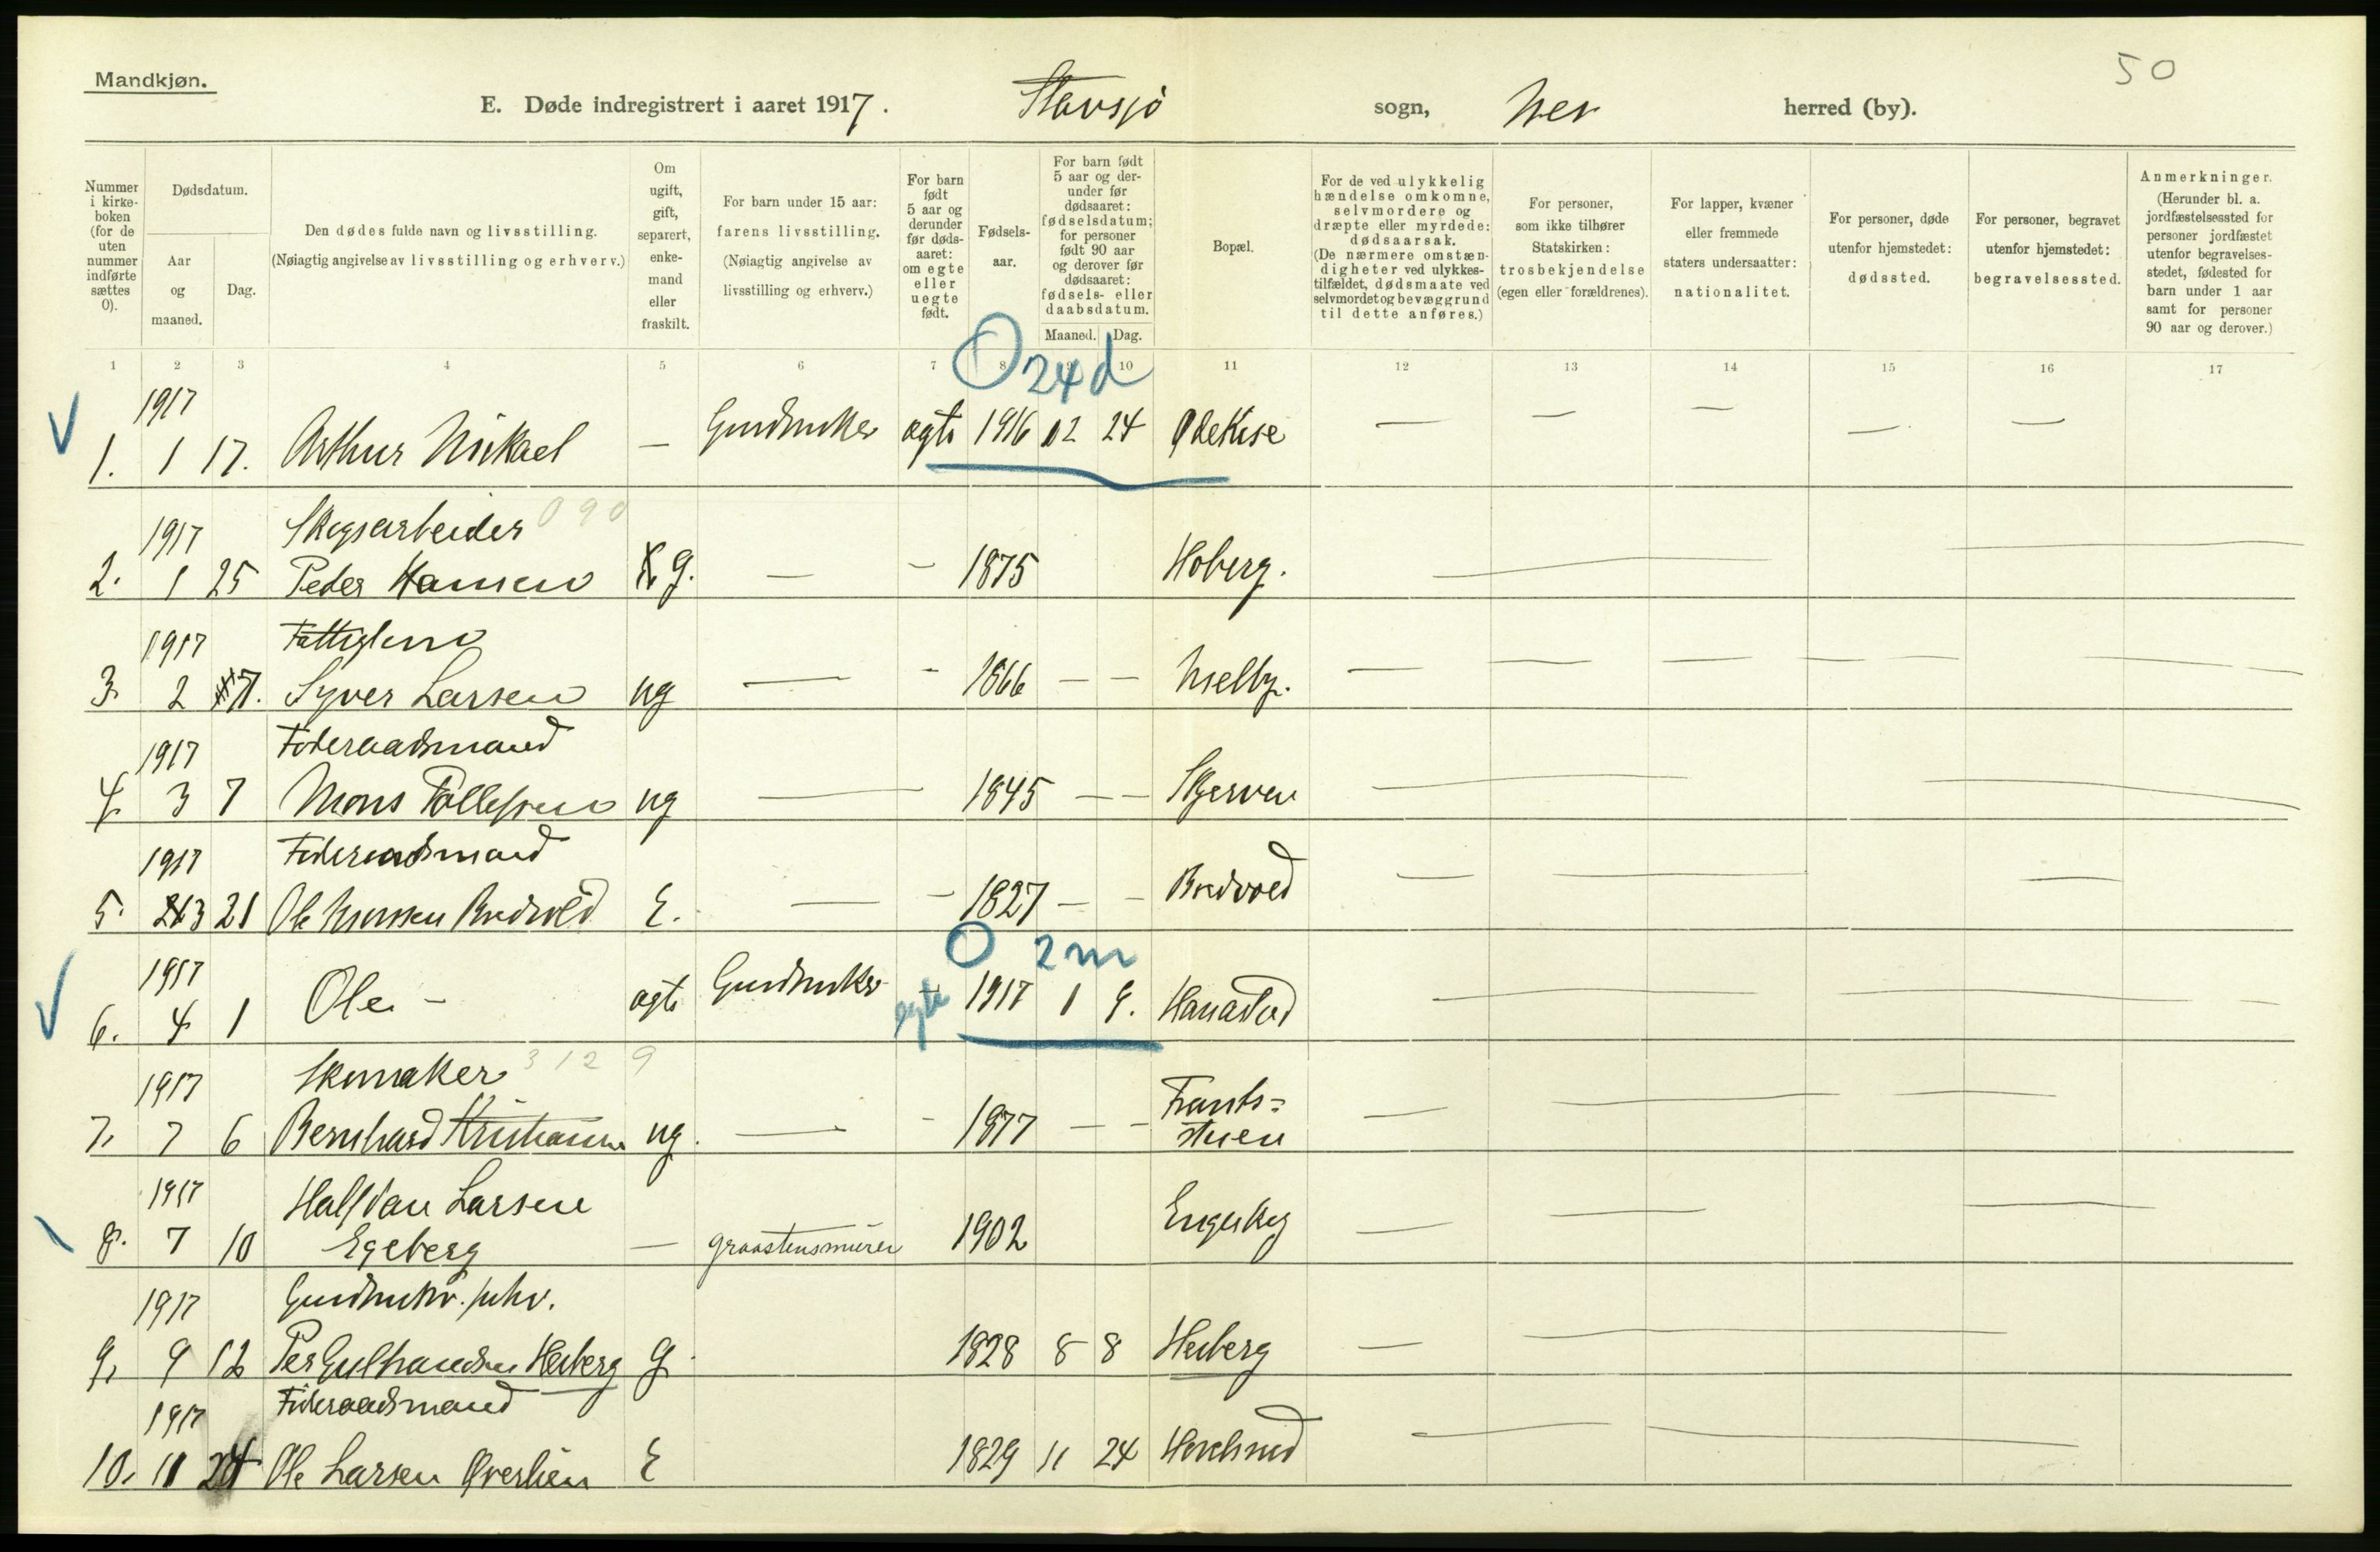 50
Mandkjøn.
E. Døde indregistrert i aaret 1917. Stavsjø sogn, Nes herred (by).
Nummer i kirke-boken (for de uten nummer indførte sættes 0).
Dødsdatum.
Aar og maaned.
Dag.
Den dødes fulde navn og livsstilling.
(Nøiagtig angivelse av livsstilling og erhverv.)
Om ugift, gift, separert, enke-mand eller fraskilt.
For barn under 15 aar:
farens livsstilling.
(Nøiagtig angivelse av
livsstilling og erhverv.)
For barn født 5 aar og derunder før døds-aaret: om egte eller uegte født.
Fødsels-aar.
For barn født 5 aar og der-under før dødsaaret: fødselsdatum; for personer født 90 aar og derover før dødsaaret: fødsels- eller daabsdatum.
Maaned. Dag.
Bopæl.
For de ved ulykkelig hændelse omkomne, selvmordere og dræpte eller myrdede: dødsaarsak.
(De nærmere omstæn-digheter ved ulykkes-tilfældet, dødsmaate ved selvmordet og bevæggrund til dette anføres.)
For personer, som ikke tilhører Statskirken: trosbekjendelse (egen eller forældrenes).
For lapper, kvæner eller fremmede staters undersaatter: nationalitet.
For personer, døde utenfor hjemstedet: dødssted.
For personer, begravet utenfor hjemstedet: begravelsessted.
Anmerkninger.
(Herunder bl. a. jordfæstelsessted for personer jordfæstet utenfor begravelses-stedet, fødested for barn under 1 aar samt for personer 90 aar og derover.)
1 2 3 4 5 6 7 8 9 10 11 12 13 14 15 16 17
0 24 d
1917
1. 1 17. Arthur Mikael — Gurdbruker ægte 1916 12 24 — — — — —
Skogsarbeider 090
1917
2. 1 25 Peder Hansen g. — – 1875 Hoberg.
Fattiglem
1917
3. 2 7. Syver Larsen ug — – 1866 — — Melby.
Føderaadsmand
1917
4. 3 7 Mons Pollessen ug — 1845 — — Skjerven
Føderaadsmand
1917
5. 3 21 Ole Monsen Bredvold E. — – 1827 — – Bredvold
0 2 m
1917
6. 4 1 Ole – ægte Gurdbruker egte 1917 1 9.
Skomaker 312 9
1917
7. 7 6 Bernhard Kristiansen ug. — – 1877 — – Frants=
stuen
1917 Halfdan Larsen
8. 7 10 Egeberg — graastensmurer 1902
1917
9. 9 12 Per Gulbrandsen Heiberg g. 1828 8 8 Heiberg
Føderaadsmand
1917
10. 11 24 Ole Larsen Øverlien E 1829 11 24